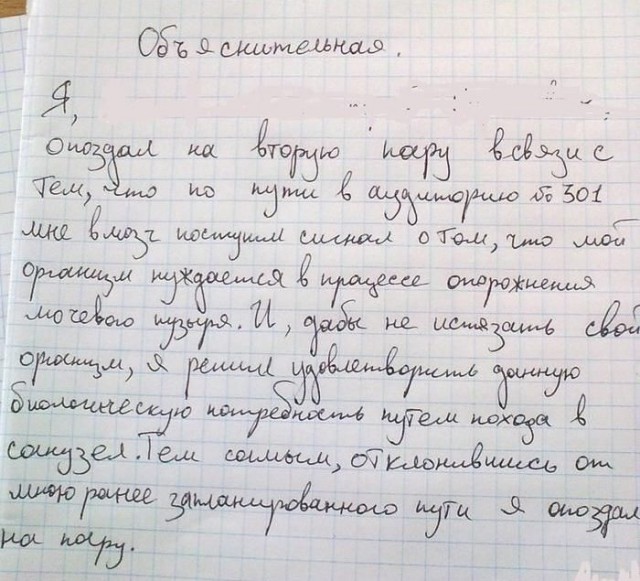 Объяснительная.
Я,
опоздал на вторую пару в связи с
тем, что по пути в аудиторию № 301
мне в мозг поступил сигнал о том, что мой
организм нуждается в процессе опорожнения
мочевого пузыря. И, дабы не истязать свой
организм, я решил удовлетворить данную
биологическую потребность путем похода в
санузел. Тем самым, отклонившись от
мною ранее запланированного пути я опоздал
на пару.